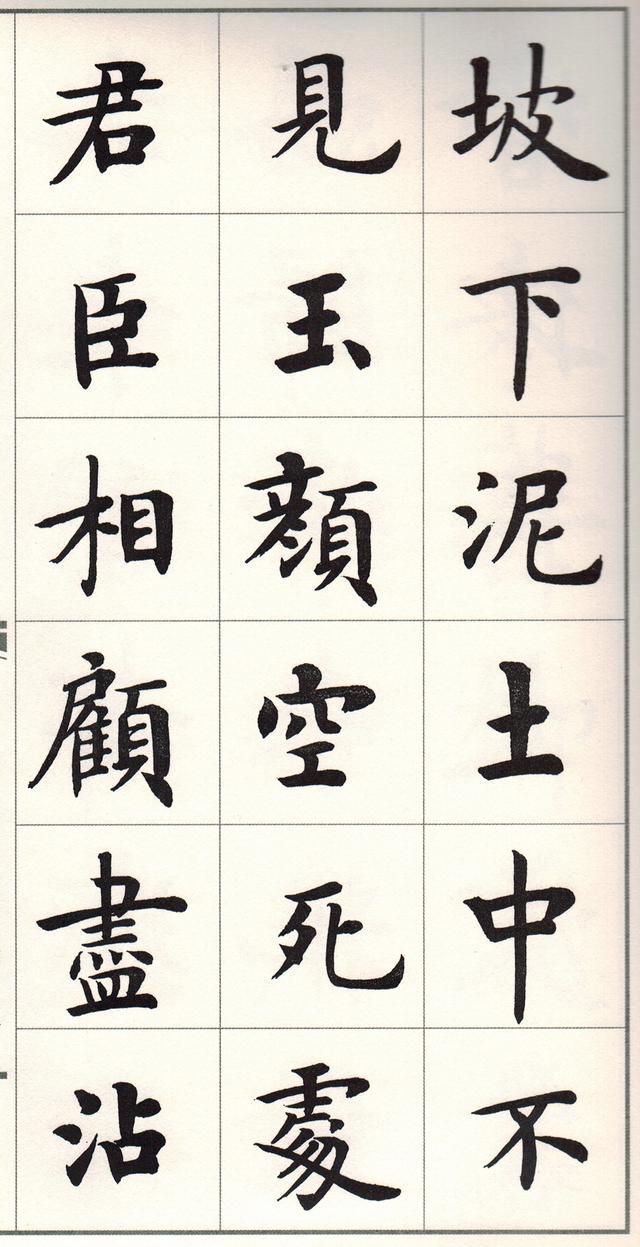 坡下泥土中不
見玉顏空死處
君臣相顧盡沾